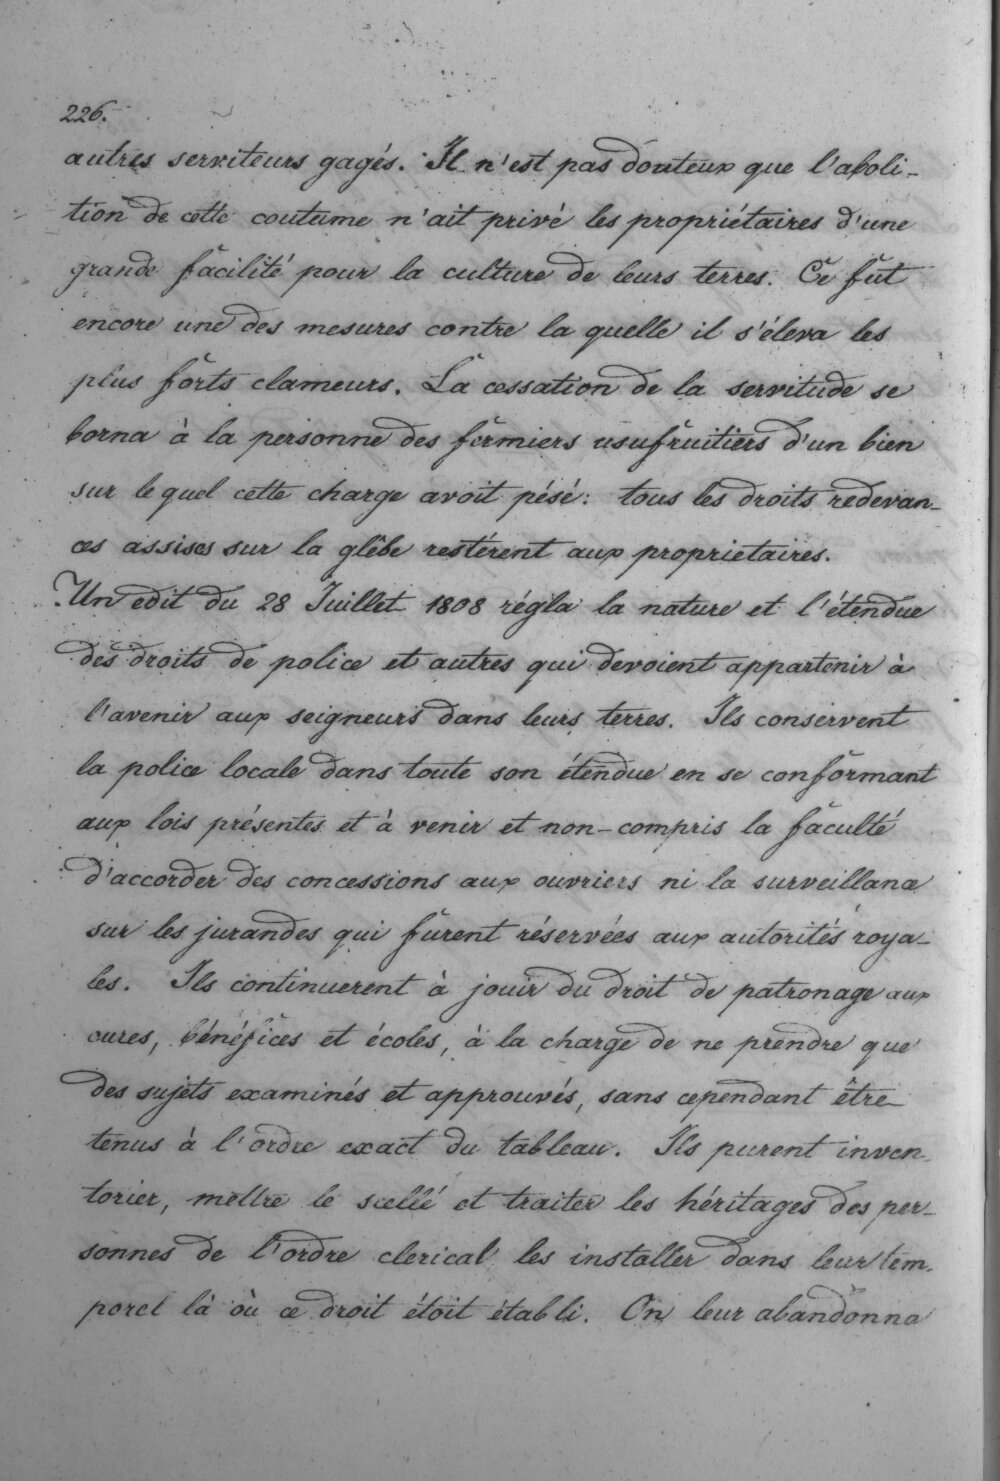 226.
autres serviteurs gagés. Il n'est pas douteux que l'aboli-
tion de cette coutume n'ait privé les propriétaires d'une
grande facilité pour la culture de leurs terres. Ce fut
encore une des mesures contre la quelle il s'éleva les
plus forts clameurs. La cessation de la servitude se
borna à la personne des fermiers usufruitiers d'un bien
sur lequel cette charge avoit pésé: tous les droits redevan-
ces assises sur la glêbe restérent aux proprietaires.
Un edit du 28 Juillet 1808 régla la nature et l'étendue
des droits de police et autres qui devoient appartenir à
l'avenir aux seigneurs dans leurs terres. Ils conservent
la police locale dans toute son étendue en se conformant
aux lois présentes et à venir et non-compris la faculté
d'accorder des concessions aux ouvriers ni la surveillance
sur les jurandes qui furent réservées aux autorités roya-
les. Ils continuerent à jouir du droit de patronage aux
cures, bénéfices et écoles, à la charge de ne prendre que
des sujets examinés et approuvés, sans cependant être
tenus à l'ordre exact du tableau. Ils purent inven-
torier, mettre le scellé et traiter les héritages des per-
sonnes de l'ordre clerical les installer dans leur tem-
porel là où ce droit étoit établi. On leur abandonna